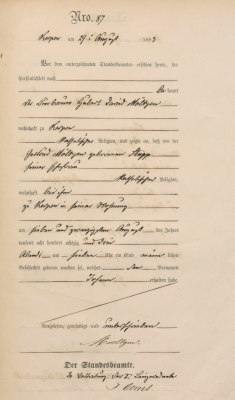 Nro. 87
Kerpen am 29 ten August 1883
Vor dem unterzeichneten Standesbeamten erschien heute, der
Persönlichkeit nach
bekannt
der
wohnhaft zu Kerpen
katholischer Religion, und zeigte an, daß von der
Gertrud geborenen
seiner Ehefrau
katholischer Religion,
wohnhaft bei ihm
zu Kerpen in seiner Wohnung
am sieben und zwanzigsten August des Jahres
tausend acht hundert achtzig und drei
Abends um sieben Uhr ein Kind männlichen
Geschlechts geboren worden sei, welches den Vornamen
Johann erhalten habe
Vorgelesen, genehmigt und unterschrieben
Der Standesbeamte.
In Vertretung